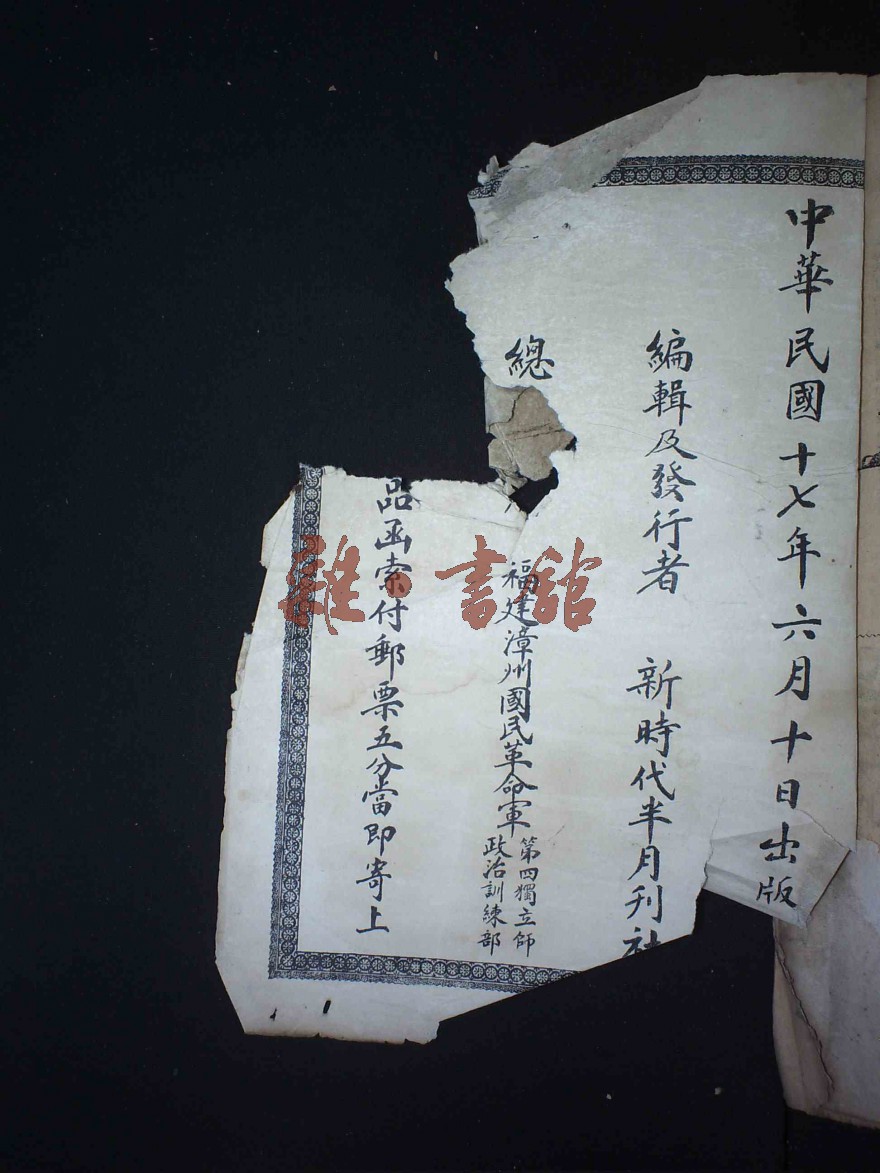 中華民國十七年六月十日出版
編輯及發行者 新時代半月刊社
總
福建漳州國民革命軍第四獨立師
政治訓練部
品函索付郵票五分當即寄上
雜·書舘